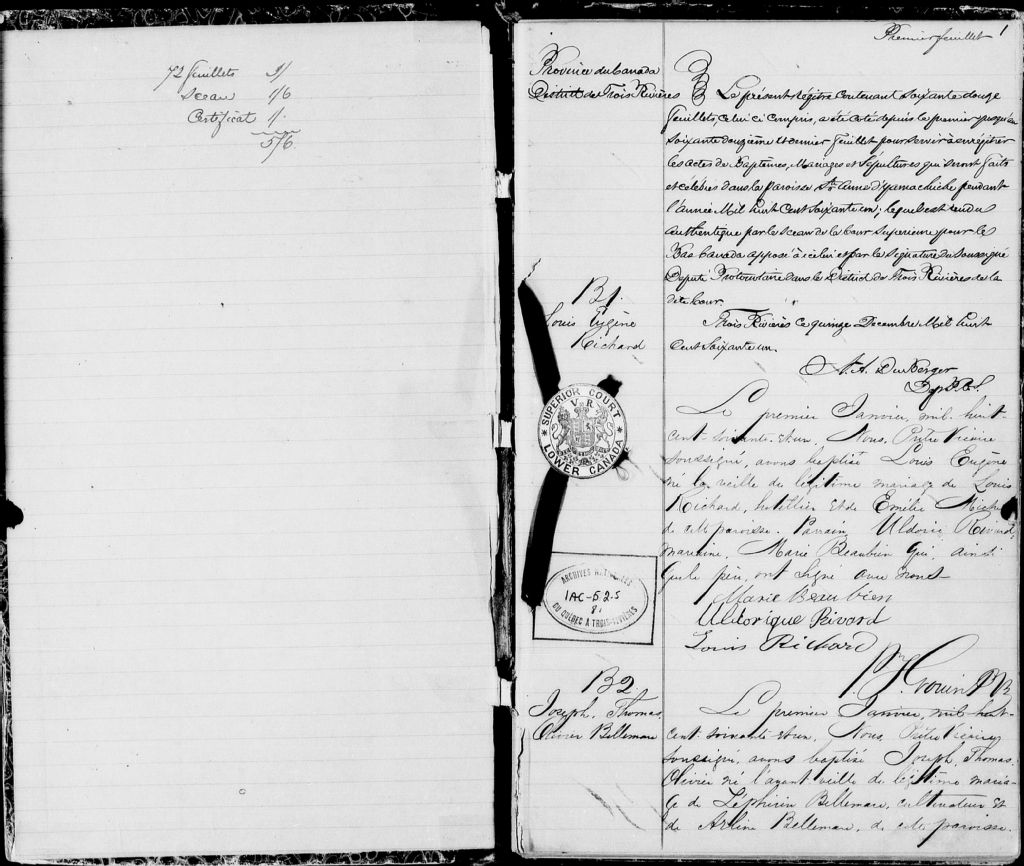 72 feuillets 3/
Sceau 1/6
Certificat 1/.
5/6.
Premier feuillet 1
Province du Canada
District des Trois Rivières
Le présent Régitre contenant soixante douze
feuillets, celui ci compris, a été coté depuis le premier jusqu'au
soixante douzième et dernier feuillet pour servir à enrégitrer
les actes de Baptêmes, Mariages et Sépultures qui seront faits
et célébrés dans la Paroisse Ste Anne d'Yamachiche pendant
l'année Mil huit Cent soixante un; lequel est rendu
authentique par le sceau de la Cour Supérieure pour le
Bas Canada apposé à icelui et par la signature du soussigné
Député Protonotaire dans le District des Trois Rivières de la
dite Cour.
Trois Rivières ce quinze Décembre Mil huit
Cent soixante un.
Dep. P.C.S.
B1.
Louis Eugène
Richard
Le premier Janvier, mil huit-
cent-soixante-et-un, Nous, Prêtre Vicaire
soussigné, avons baptisé Louis Eugène
né la veille du légitime mariage de Louis
Richard, hotellier et de Emélie
de cette paroisse. Parrain, Uldoric Rivard,
marraine, Marie Beaubien qui ainsi
que le père, ont signé avec nous-
Marie Beaubien
Uldorique Rivard
Louis Richard
SUPERIOR COURT
V R
LOWER CANADA
ARCHIVES NATIONALES
1AC-52.5
81
DU QUÉBEC À TROIS-RIVIÈRES
B2
Joseph, Thomas,
Olivier Bellemare
Le premier Janvier, mil-huit-
cent-soixante-et-un, Nous, Prêtre Vicaire,
soussigné, avons baptisé Joseph, Thomas,
Olivier né l'avant veille du légitime maria-
ge de Zéphirin Bellemare, cultivateur et
de Bellemare, de cette paroisse.